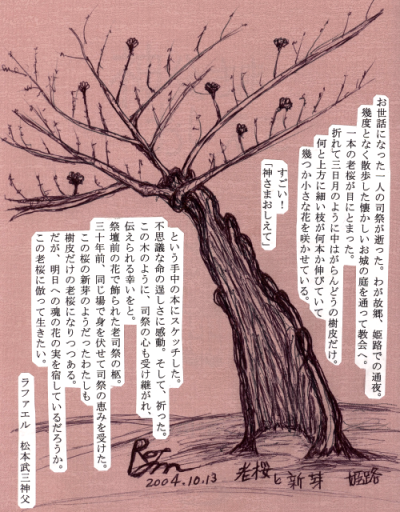 お世話になった一人の司祭が逝った。わが故郷、姫路での通夜。
幾度となく散歩した懐かしいお城の庭を通って教会へ。
一本の老桜が目にとまった。
折れて三日月のように中はがらんどうの樹皮だけ。
何と上方に細い枝が何本か伸びていて
幾つか小さな花を咲かせている。
すごい！
「神さまおしえて」
という手中の本にスケッチした。
不思議な命の逞しさに感動。そして、祈った。
この木のように、司祭の心も受け継がれ、
伝えられる幸いをと。
祭壇前の花で飾られた老司祭の柩。
三十年前、同じ場で身を伏せて司祭の恵みを受けた。
この桜の新芽のようだったわたしも
樹皮だけの老桜になりつつある。
だが、明日への魂の花の実を宿しているだろうか。
この老桜に倣って生きたい。
ラファエル 松本武三神父
2004.10.13
老桜と新芽 姫路